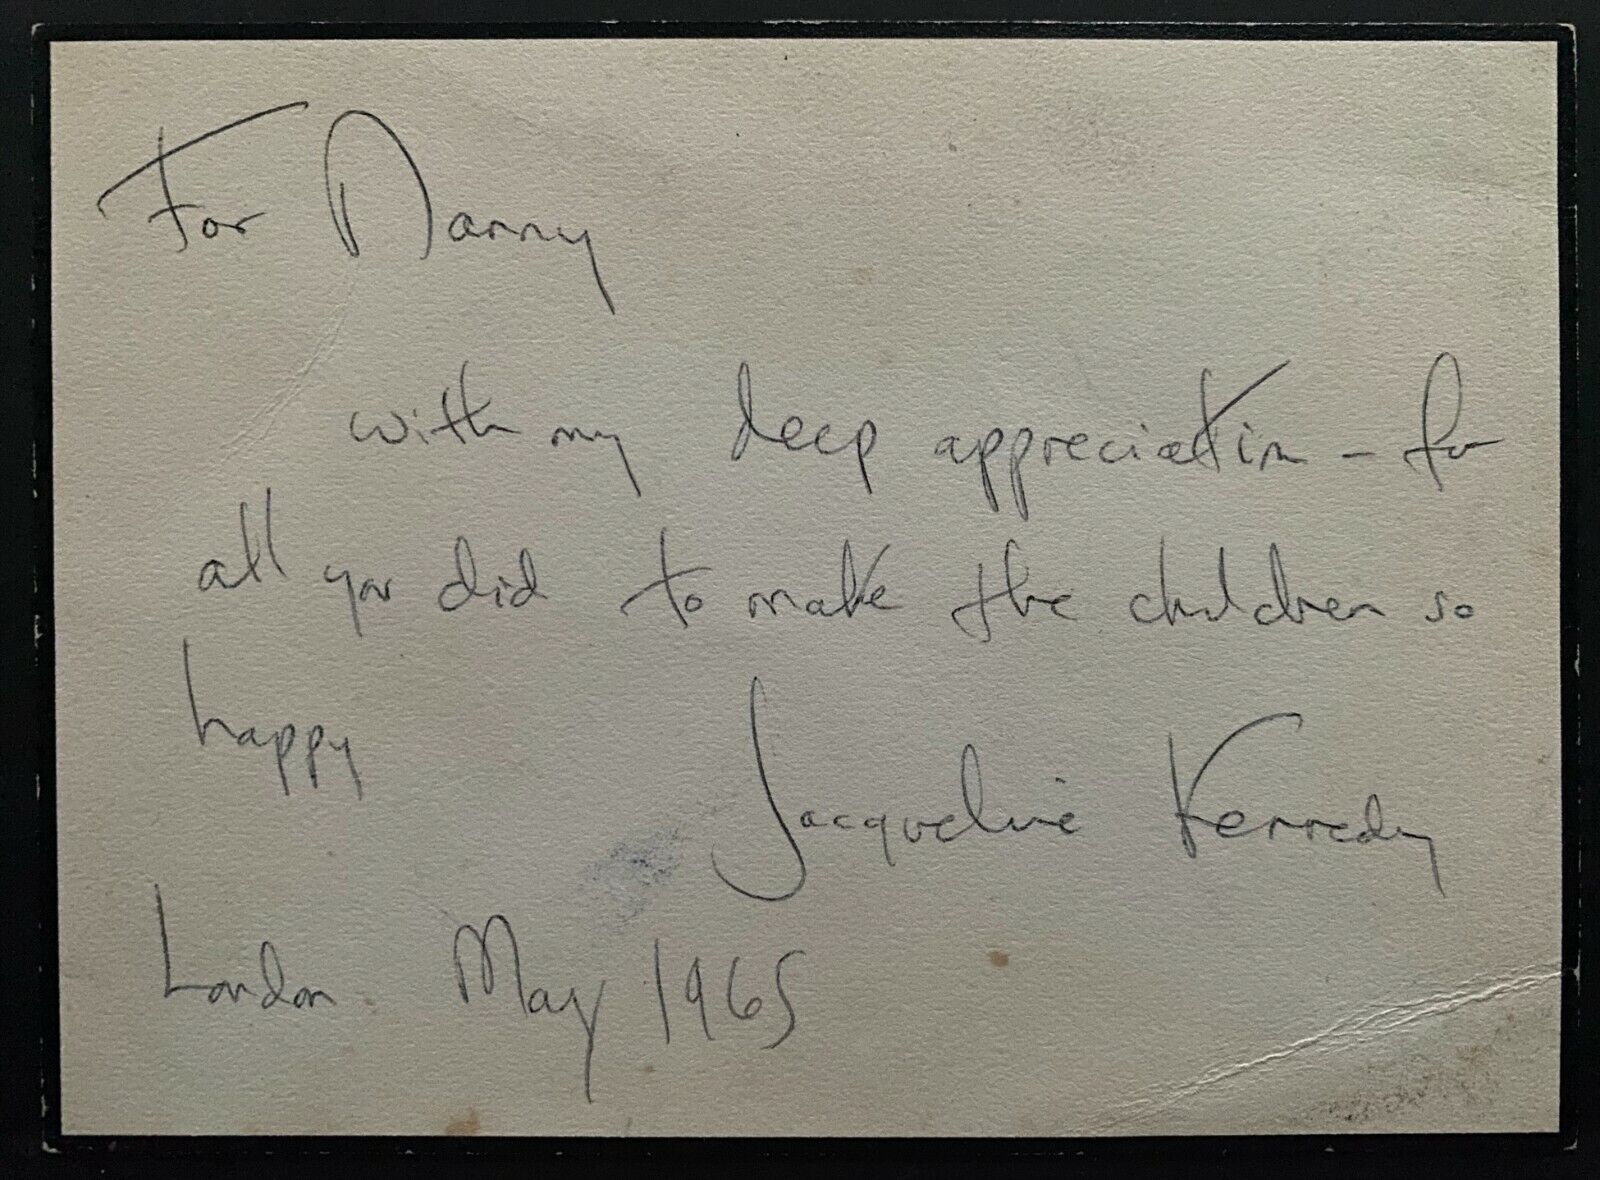 For Danny
with my deep appreciation - for
all you did to make the children so
happy
Jacqueline Kennedy
London May 1965